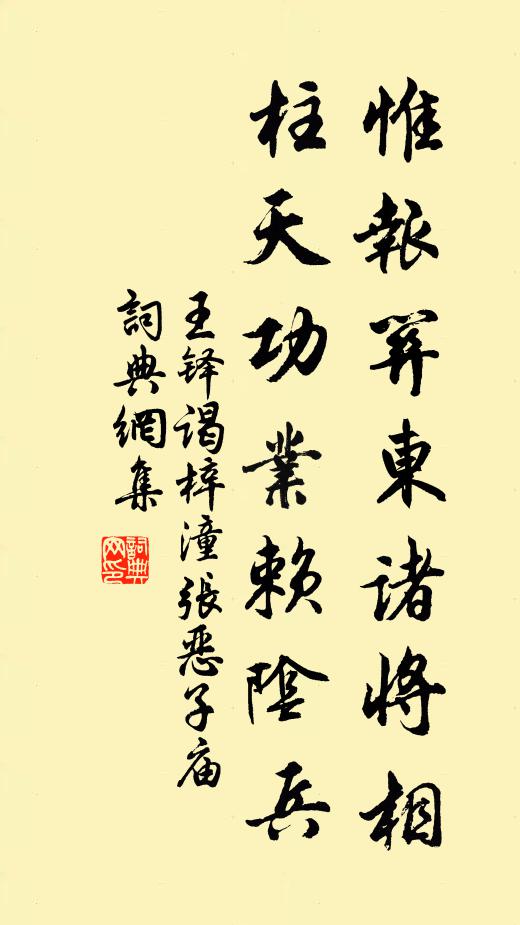 惟報關東諸將相
柱天功業賴陰兵
王铎謁梓潼張惡子庙
詞典網集
詞典网印